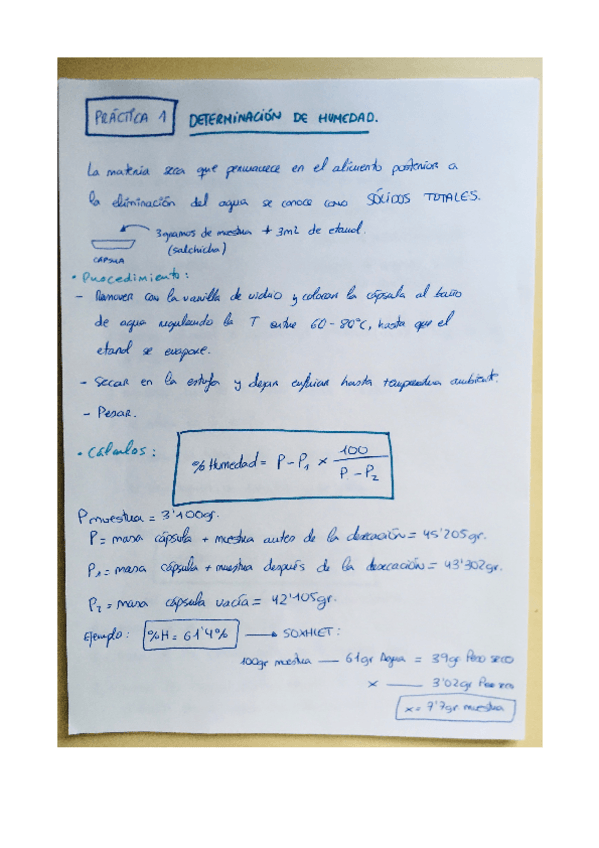 PRÁCTICA 1 DETERMINACIÓN DE HUMEDAD.
La materia seca que permanece en el alimento posterior a
la eliminación del agua se conoce como SÓLIDOS TOTALES.
3gramos de muestra + 3ml de etanol.
(salchicha)
CÁPSULA
• Procedimiento:
- Remover con la varilla de vidrio y colocar la cápsula al baño
de agua regulando la T entre 60-80°C, hasta que el
etanol se evapore.
- Secar en la estufa y dejar enfriar hasta temperatura ambiente.
- Pesar.
• Cálculos:
% Humedad = P - P₁ × 100 / P - P₂
P muestra = 3'100gr.
P = masa cápsula + muestra antes de la desecación = 45'205gr.
P₁ = masa cápsula + muestra después de la desecación = 43'302gr.
P₂ = masa cápsula vacía = 42'105gr.
Ejemplo: %H = 61'4% → SOXHLET:
100gr muestra — 61gr Agua = 39gr Peso seco
x — 3'02gr Peso seco
x = 7'7gr muestra